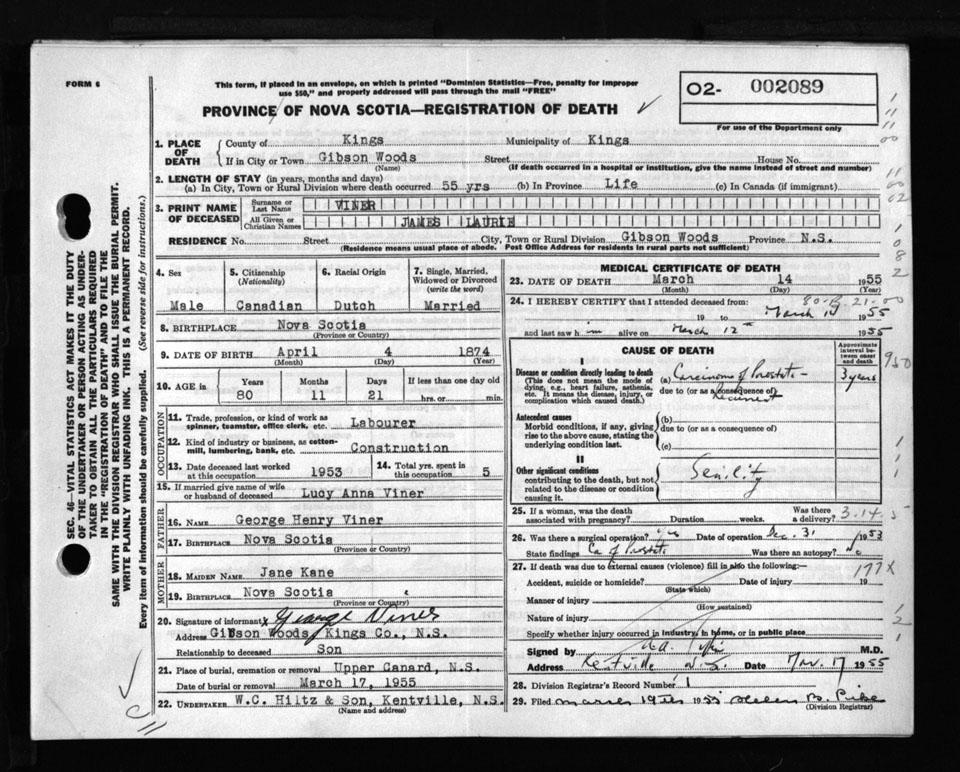 FORM 6
This form, if placed in an envelope, on which is printed "Dominion Statistics—Free, penalty for improper
use $50," and properly addressed will pass through the mail "FREE"
PROVINCE OF NOVA SCOTIA—REGISTRATION OF DEATH
02- 002089
For use of the Department only
1. PLACE OF DEATH
County of Kings Municipality of Kings
If in City or Town Gibson Woods Street House No.
(Name) (If death occurred in a hospital or institution, give the name instead of street and number)
2. LENGTH OF STAY (in years, months and days)
(a) In City, Town or Rural Division where death occurred 55 yrs (b) In Province Life (c) In Canada (if immigrant)
3. PRINT NAME OF DECEASED
Surname or Last Name VINER
All Given or Christian Names JAMES LAURIE
RESIDENCE No. Street City, Town or Rural Division Gibson Woods Province N.S.
(Residence means usual place of abode. Post Office Address for residents in rural parts not sufficient)
4. Sex Male
5. Citizenship (Nationality) Canadian
6. Racial Origin Dutch
7. Single, Married, Widowed or Divorced (write the word) Married
8. BIRTHPLACE Nova Scotia
(Province or Country)
9. DATE OF BIRTH April 4 1874
(Month) (Day) (Year)
10. AGE in Years Months Days If less than one day old
80 11 21 hrs. or min.
OCCUPATION
11. Trade, profession, or kind of work as
spinner, teamster, office clerk, etc. Labourer
12. Kind of industry or business, as cotton-
mill, lumbering, bank, etc. Construction
13. Date deceased last worked
at this occupation 1953
14. Total yrs. spent in
this occupation 5
15. If married give name of wife
or husband of deceased Lucy Anna Viner
FATHER
16. NAME George Henry Viner
17. BIRTHPLACE Nova Scotia
(Province or Country)
MOTHER
18. MAIDEN NAME Jane Kane
19. BIRTHPLACE Nova Scotia
(Province or Country)
20. Signature of informant X George Viner
Address Gibson Woods, Kings Co., N.S.
Relationship to deceased Son
21. Place of burial, cremation or removal Upper Canard, N.S.
Date of burial or removal March 17, 1955
22. UNDERTAKER W.C. Hiltz & Son, Kentville, N.S.
(Name and address)
MEDICAL CERTIFICATE OF DEATH
23. DATE OF DEATH March 14 1955
(Month) (Day) (Year)
24. I HEREBY CERTIFY that I attended deceased from:
19 to March 14 1955
and last saw him alive on March 12th 1955
CAUSE OF DEATH
Approximate interval between onset and death
I
Disease or condition directly leading to death
(This does not mean the mode of
dying, e.g., heart failure, asthenia,
etc. It means the disease, injury, or
complication which caused death.)
(a) Carcinoma of Prostate - 3 years
due to (or as a consequence of) Recurrent
Antecedent causes
Morbid conditions, if any, giving
rise to the above cause, stating the
underlying condition last.
(b)
due to (or as a consequence of)
(c)
II
Other significant conditions
contributing to the death, but not
related to the disease or condition
causing it.
Senility
25. If a woman, was the death
associated with pregnancy? Duration weeks. Was there a delivery?
3-14-5
26. Was there a surgical operation? yes Date of operation Dec. 31 1953
State findings Ca of Prostate Was there an autopsy? No
27. If death was due to external causes (violence) fill in also the following:—
177X
Accident, suicide or homicide? Date of injury 19
(State which)
Manner of injury
(How sustained)
Nature of injury
Specify whether injury occurred in industry, in home, or in public place
Signed by M.D.
Address Kentville N.S. Date 17 1955
28. Division Registrar's Record Number 1
29. Filed March 19th 1955 Helen B.
(Division Registrar)
SEC. 46—VITAL STATISTICS ACT MAKES IT THE DUTY
OF THE UNDERTAKER OR PERSON ACTING AS UNDER-
TAKER TO OBTAIN ALL THE PARTICULARS REQUIRED
IN THE "REGISTRATION OF DEATH" AND TO FILE THE
SAME WITH THE DIVISION REGISTRAR WHO SHALL ISSUE THE BURIAL PERMIT.
WRITE PLAINLY WITH UNFADING INK. THIS IS A PERMANENT RECORD.
Every item of information should be carefully supplied. (See reverse side for instructions.)